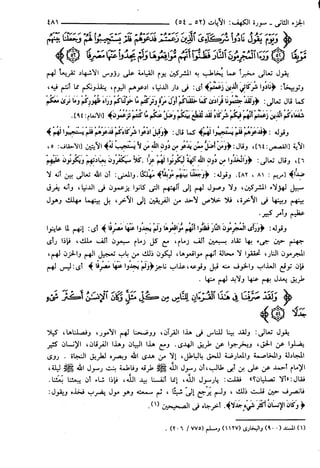 الجزء الثاني - سورة الكهف: الآيات (٥٢ - ٥٤) ٤٨١
﴿وَيَوْمَ يَقُولُ نَادُوا شُرَكَائِيَ الَّذِينَ زَعَمْتُمْ فَدَعَوْهُمْ فَلَمْ يَسْتَجِيبُوا لَهُمْ وَجَعَلْنَا بَيْنَهُم
مَّوْبِقًا ﴿٥٢﴾ وَرَأَى الْمُجْرِمُونَ النَّارَ فَظَنُّوا أَنَّهُم مُّوَاقِعُوهَا وَلَمْ يَجِدُوا عَنْهَا مَصْرِفًا ﴿٥٣﴾
يقول تعالى مخبراً عما يخاطب به المشركين يوم القيامة على رؤوس الأشهاد تقريعاً لهم
وتوبيخاً: ﴿نَادُوا شُرَكَائِيَ الَّذِينَ زَعَمْتُمْ﴾ أي: في دار الدنيا، ادعوهم اليوم، ينقذونكم مما أنتم فيه،
كما قال تعالى: ﴿وَلَقَدْ جِئْتُمُونَا فُرَادَى كَمَا خَلَقْنَاكُمْ أَوَّلَ مَرَّةٍ وَتَرَكْتُم مَّا خَوَّلْنَاكُمْ وَرَاءَ ظُهُورِكُمْ وَمَا نَرَى مَعَكُمْ
شُفَعَاءَكُمُ الَّذِينَ زَعَمْتُمْ أَنَّهُمْ فِيكُمْ شُرَكَاءُ لَقَد تَّقَطَّعَ بَيْنَكُمْ وَضَلَّ عَنكُم مَّا كُنتُمْ تَزْعُمُونَ﴾ [الأنعام: ٩٤].
وقوله: ﴿فَدَعَوْهُمْ فَلَمْ يَسْتَجِيبُوا لَهُمْ﴾ كما قال: ﴿وَقِيلَ ادْعُوا شُرَكَاءَكُمْ فَدَعَوْهُمْ فَلَمْ يَسْتَجِيبُوا لَهُمْ﴾
الآية [القصص: ٦٤]، وقال: ﴿وَمَنْ أَضَلُّ مِمَّن يَدْعُو مِن دُونِ اللَّهِ مَن لَّا يَسْتَجِيبُ لَهُ﴾ الآيتين [الأحقاف: ٥،
٦]، وقال تعالى: ﴿وَاتَّخَذُوا مِن دُونِ اللَّهِ آلِهَةً لِّيَكُونُوا لَهُمْ عِزًّا. كَلَّا سَيَكْفُرُونَ بِعِبَادَتِهِمْ وَيَكُونُونَ عَلَيْهِمْ
ضِدًّا﴾ [مريم: ٨١، ٨٢]. وقوله: ﴿وَجَعَلْنَا بَيْنَهُم مَّوْبِقًا﴾ مهلكاً. والمعنى: أن الله تعالى بين أنه لا
سبيل لهؤلاء المشركين، ولا وصول لهم إلى آلهتهم التي كانوا يزعمون في الدنيا، وأنه يفرق
بينهم وبينها في الآخرة، فلا خلاص لأحد من الفريقين إلى الآخر، بل بينهما مهلك وهول
عظيم وأمر كبير.
وقوله: ﴿وَرَأَى الْمُجْرِمُونَ النَّارَ فَظَنُّوا أَنَّهُم مُّوَاقِعُوهَا وَلَمْ يَجِدُوا عَنْهَا مَصْرِفًا﴾ أي: إنهم لما عاينوا
جهنم حين جيء بها تقاد بسبعين ألف زمام، مع كل زمام سبعون ألف ملك، فإذا رأى
المجرمون النار، تحققوا لا محالة أنهم مواقعوها، ليكون ذلك من باب تعجيل الهم والحزن لهم،
فإن توقع العذاب والخوف منه قبل وقوعه، عذاب ناجز ﴿وَلَمْ يَجِدُوا عَنْهَا مَصْرِفًا﴾ أي: ليس لهم
طريق يعدل بهم عنها ولابد لهم منها.
﴿وَلَقَدْ صَرَّفْنَا فِي هَذَا الْقُرْآنِ لِلنَّاسِ مِن كُلِّ مَثَلٍ وَكَانَ الْإِنسَانُ أَكْثَرَ شَيْءٍ
جَدَلًا ﴿٥٤﴾
يقول تعالى: ولقد بينا للناس في هذا القرآن، ووضحنا لهم الأمور، وفصلناها، كيلا
يضلوا عن الحق، ويخرجوا عن طريق الهدى. ومع هذا البيان وهذا الفرقان، الإنسان كثير
المجادلة والمخاصمة والمعارضة للحق بالباطل، إلا من هدى الله وبصره لطريق النجاة. روى
الإمام أحمد عن علي بن أبي طالب، أن رسول الله ﷺ طرقه وفاطمة بنت رسول الله ﷺ ليلة،
فقال: «ألا تصليان؟» فقلت: يارسول الله، إنما أنفسنا بيد الله، فإذا شاء أن يبعثنا بعثنا.
فانصرف حين قلت ذلك، ولم يرجع إلي شيئاً، ثم سمعته وهو مول يضرب فخذه ويقول:
﴿وَكَانَ الْإِنسَانُ أَكْثَرَ شَيْءٍ جَدَلًا﴾. أخرجاه في الصحيحين (١).
(١) المسند (٩٠٠) والبخاري (١١٢٧) ومسلم (٧٧٥ / ٢٠٦).